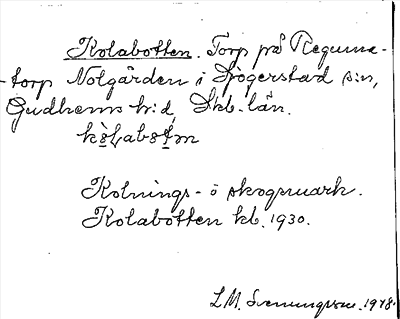 Kolabotten. Torp på Regums-
torp Nolgården i Sjogerstad s:n,
Gudhems h:d, Skb. län.
kòlabotn
Kolnings- o skogsmark.
Kolabotten kb. 1930.
L.M. Svenungsson. 1978.